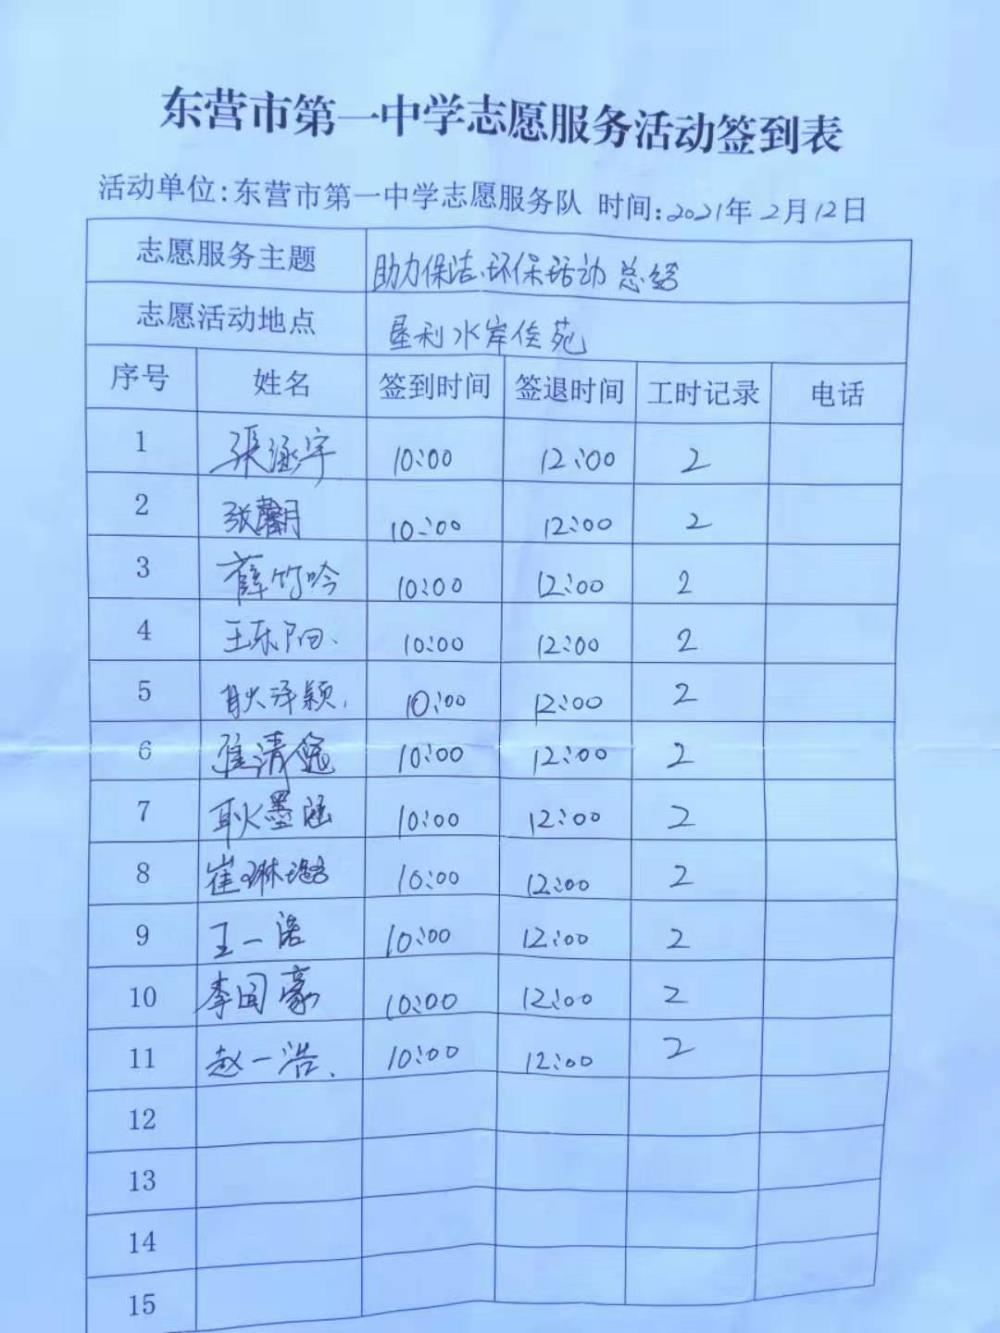 东营市第一中学志愿服务活动签到表
活动单位:东营市第一中学志愿服务队 时间:2021年2月12日
志愿服务主题 助力保洁、环保活动 总结
志愿活动地点 垦利水岸佳苑
序号 姓名 签到时间 签退时间 工时记录 电话
1 張涵宇 10:00 12:00 2
2 张馨月 10:00 12:00 2
3 薛竹吟 10:00 12:00 2
4 王乐阳、 10:00 12:00 2
5 耿泽颖、 10:00 12:00 2
6 清 10:00 12:00 2
7 耿墨涵 10:00 12:00 2
8 崔琳璐 10:00 12:00 2
9 王一诺 10:00 12:00 2
10 李国豪 10:00 12:00 2
11 赵一浩、 10:00 12:00 2
12
13
14
15